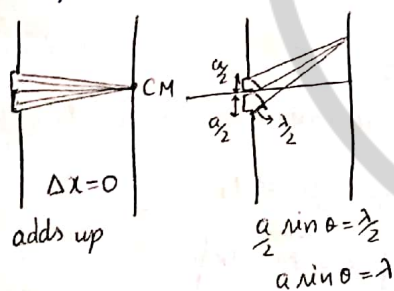 CM
Δx=0
adds up
a/2
a/2
λ/2
a/2 sin θ = λ/2
a sin θ = λ